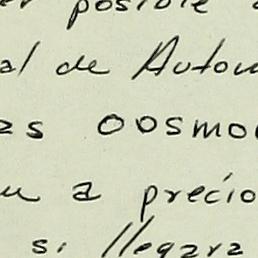 posible
al de Autom
as oosmo
a precio
si llegara